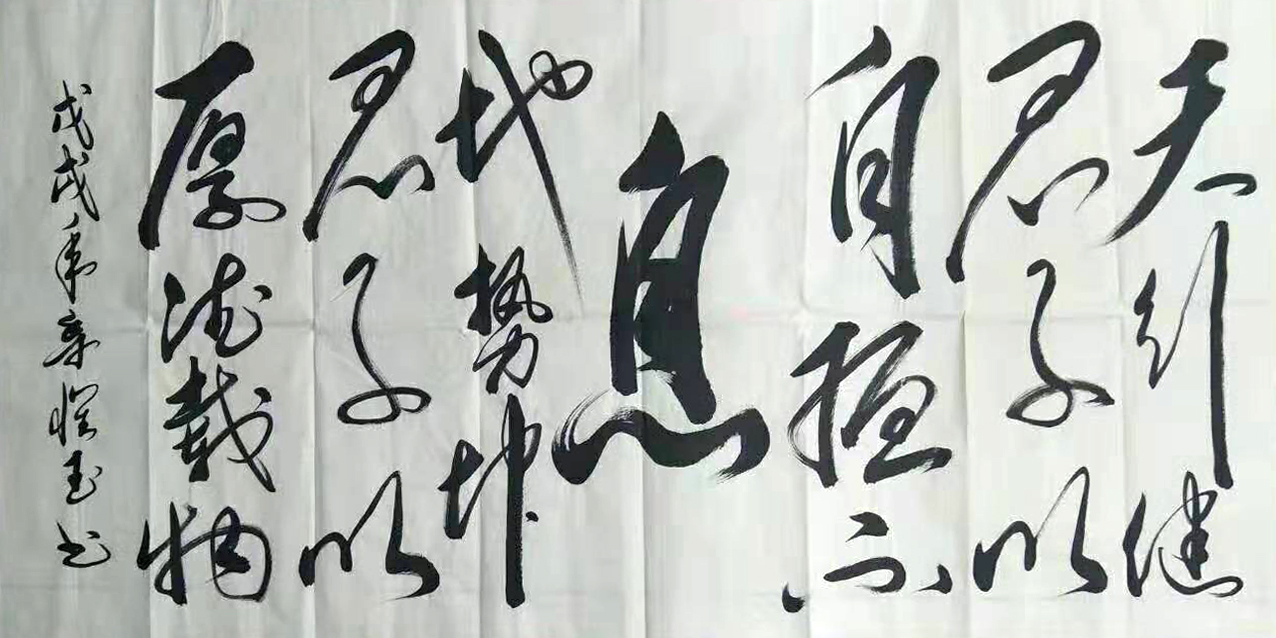 天行健
君子以
自强不
息
地勢坤
君子以
厚德載物
戊戌年玉书